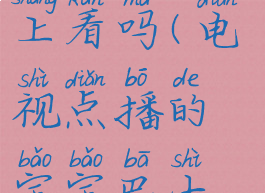 shàng kàn ma diàn
上看吗(电
shì diǎn bō de
视点播的
bǎo bǎo bā shì
宝宝巴士